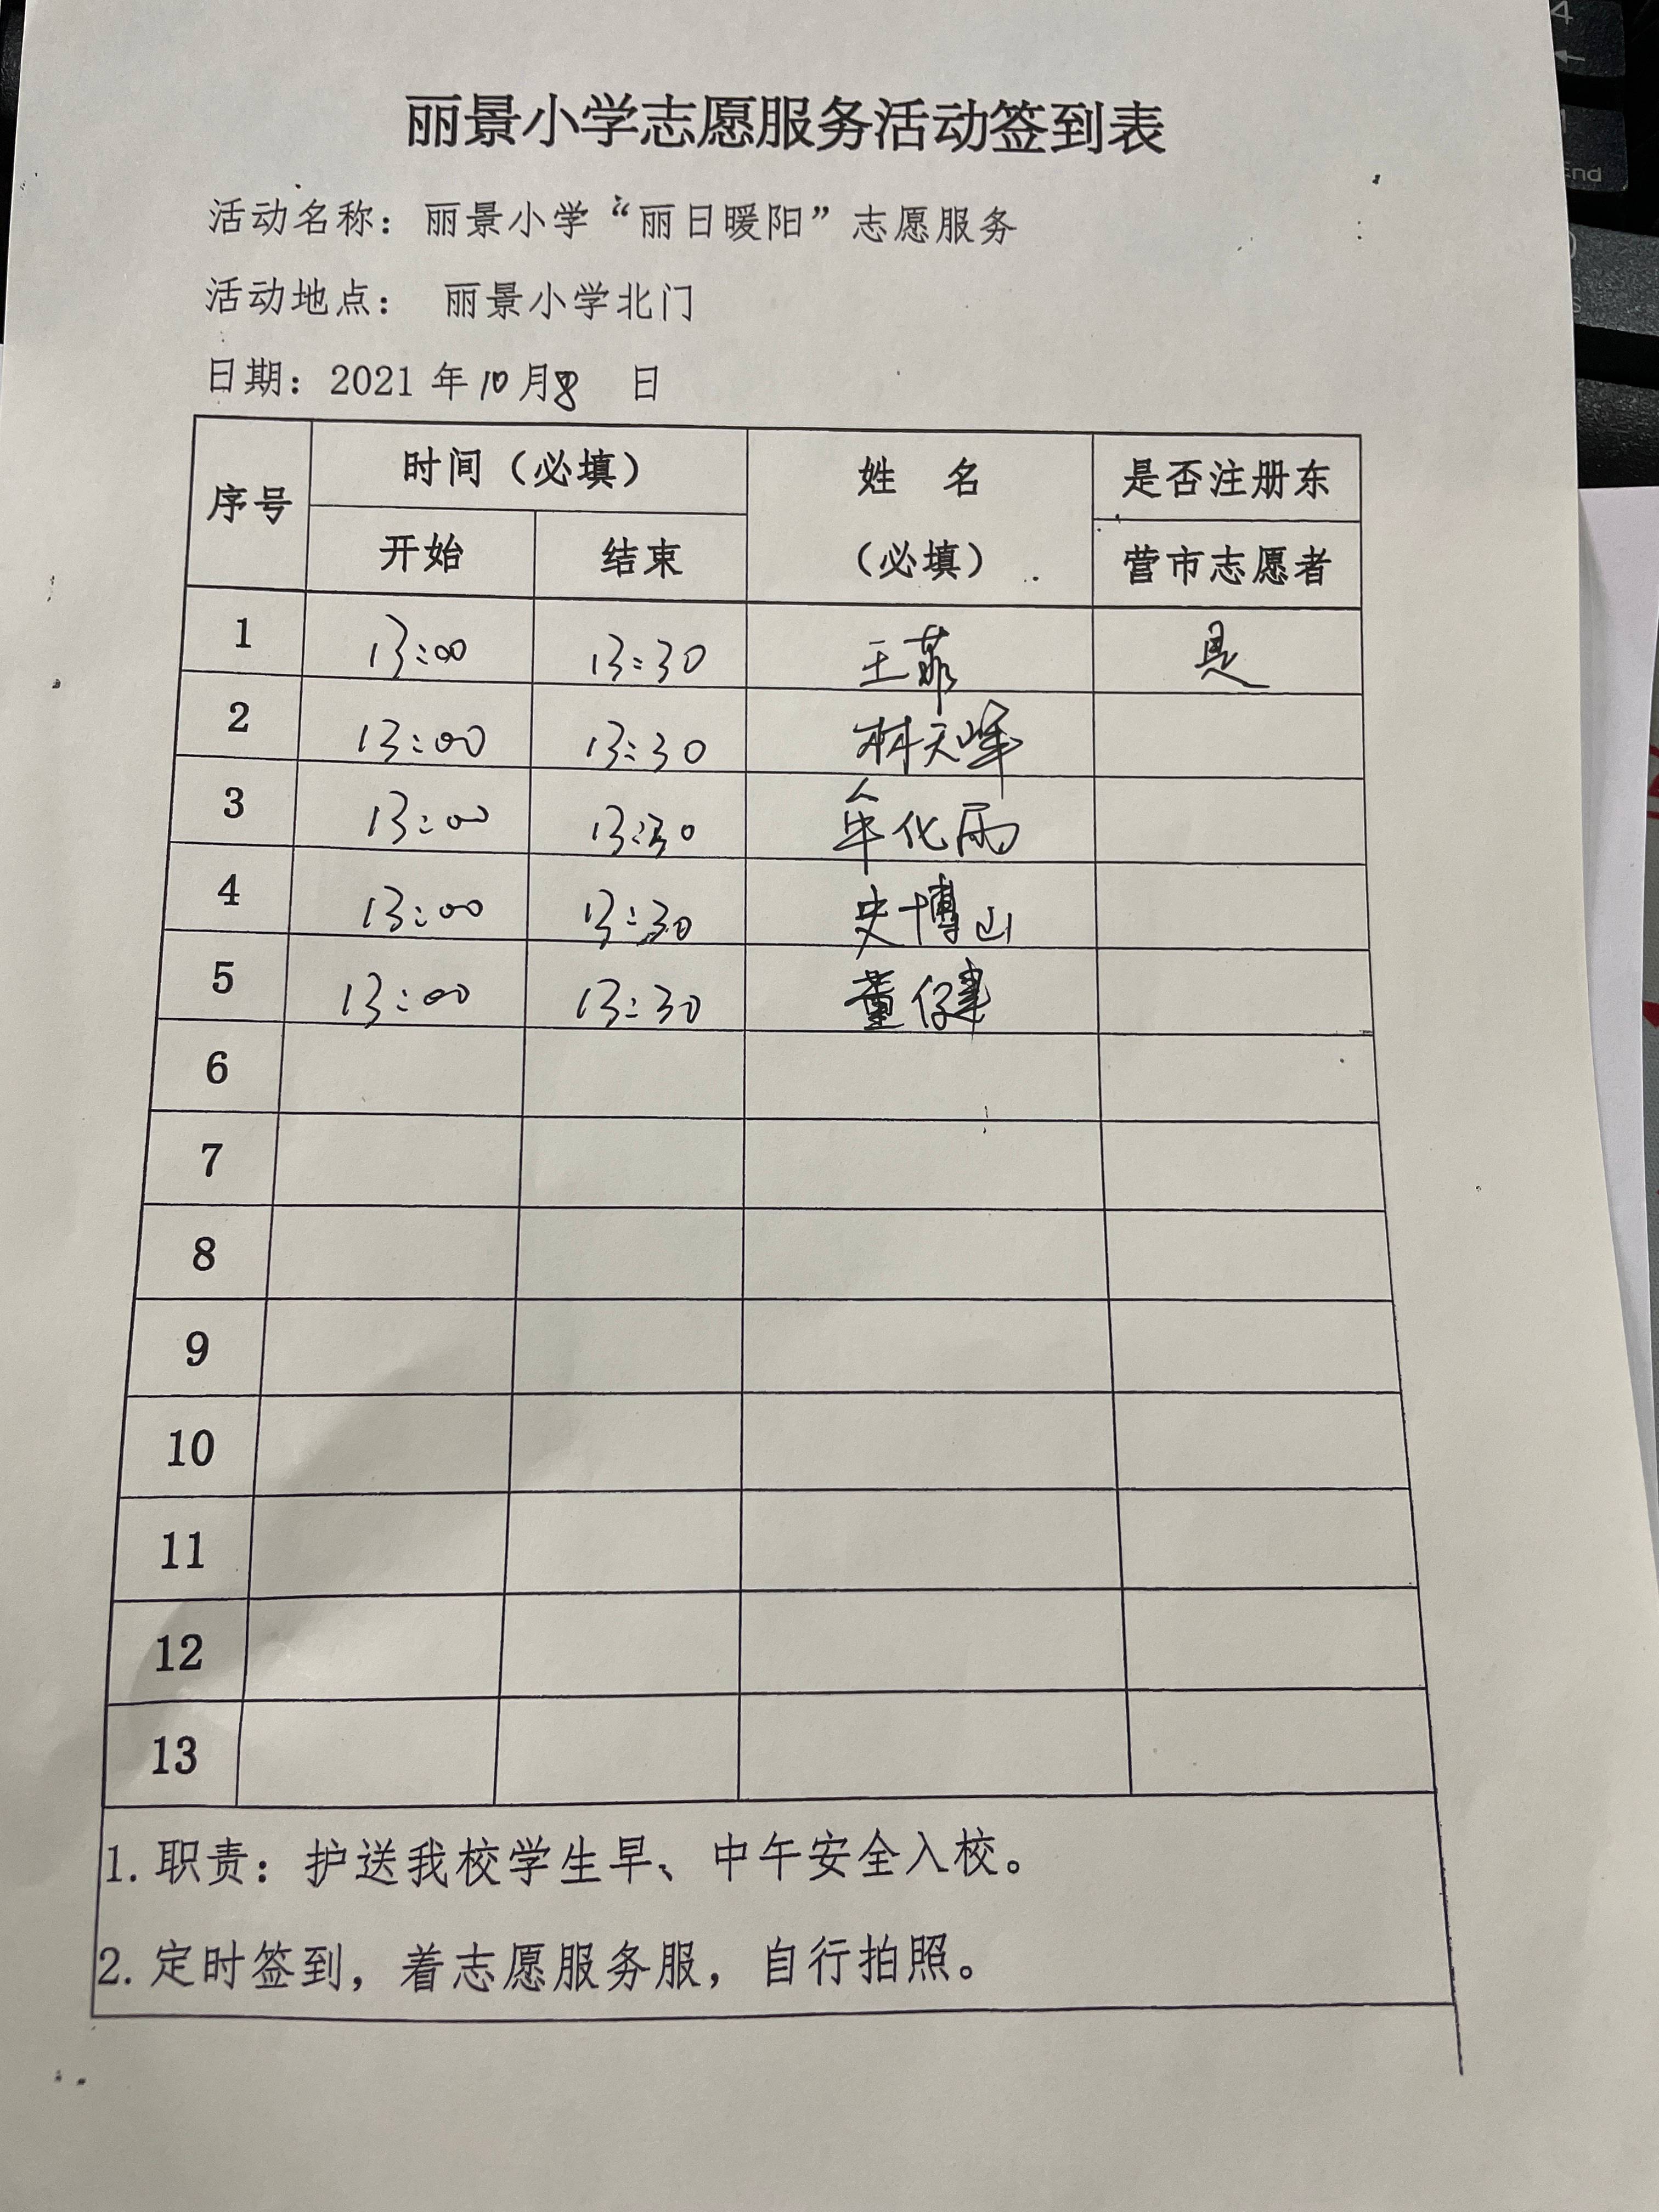 丽景小学志愿服务活动签到表
活动名称：丽景小学“丽日暖阳”志愿服务
活动地点： 丽景小学北门
日期：2021 年 10 月 8 日
序号 时间（必填） 姓 名 是否注册东
开始 结束 （必填） 营市志愿者
1 13:00 13:30 王菲 是
2 13:00 13:30 林天峰
3 13:00 13:30 牟化雨
4 13:00 13:30 史博山
5 13:00 13:30 董健
6
7
8
9
10
11
12
13
1. 职责：护送我校学生早、中午安全入校。
2. 定时签到，着志愿服务服，自行拍照。
4
End